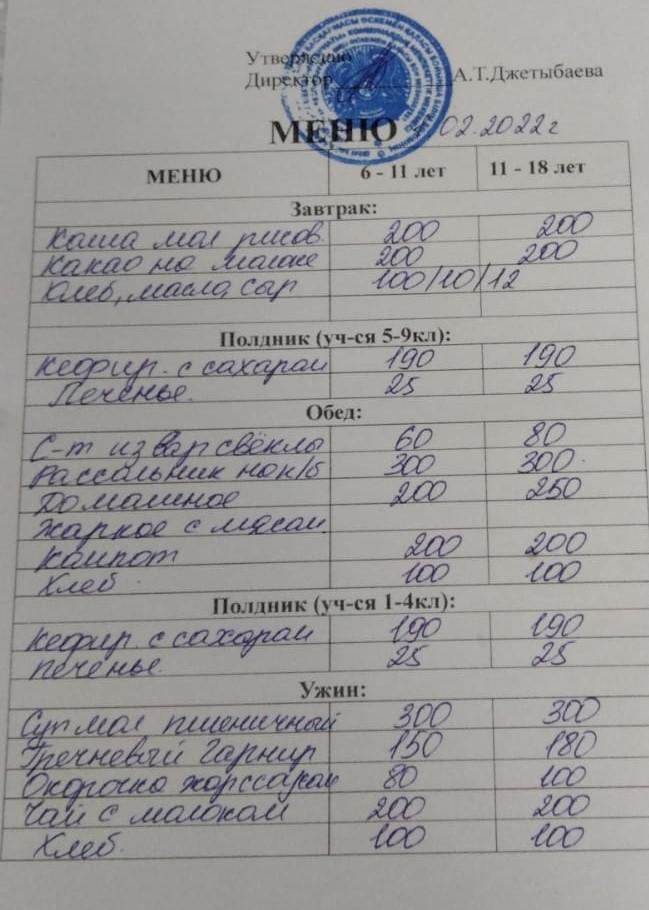 Утверждаю
Директор А.Т.Джетыбаева
МЕНЮ 02.2022г
МЕНЮ 6 - 11 лет 11 - 18 лет
Завтрак:
Каша мол рисов 200 200
Какао на молоке 200 200
Хлеб, масло, сыр 100/10/12
Полдник (уч-ся 5-9кл):
Кефир. с сахаром 190 190
Печенье. 25 25
Обед:
С-т из вар свёклы 60 80
Рассольник на к/б 300 300.
Домашнее 200 250
жаркое с мясом.
Компот 200 200
Хлеб. 100 100
Полдник (уч-ся 1-4кл):
Кефир. с сахаром 190 190
печенье. 25 25
Ужин:
Суп мол пшеничный 300 300
Гречневый гарнир 150 180
Окорочка 80 100
Чай с молоком 200 200
Хлеб. 100 100